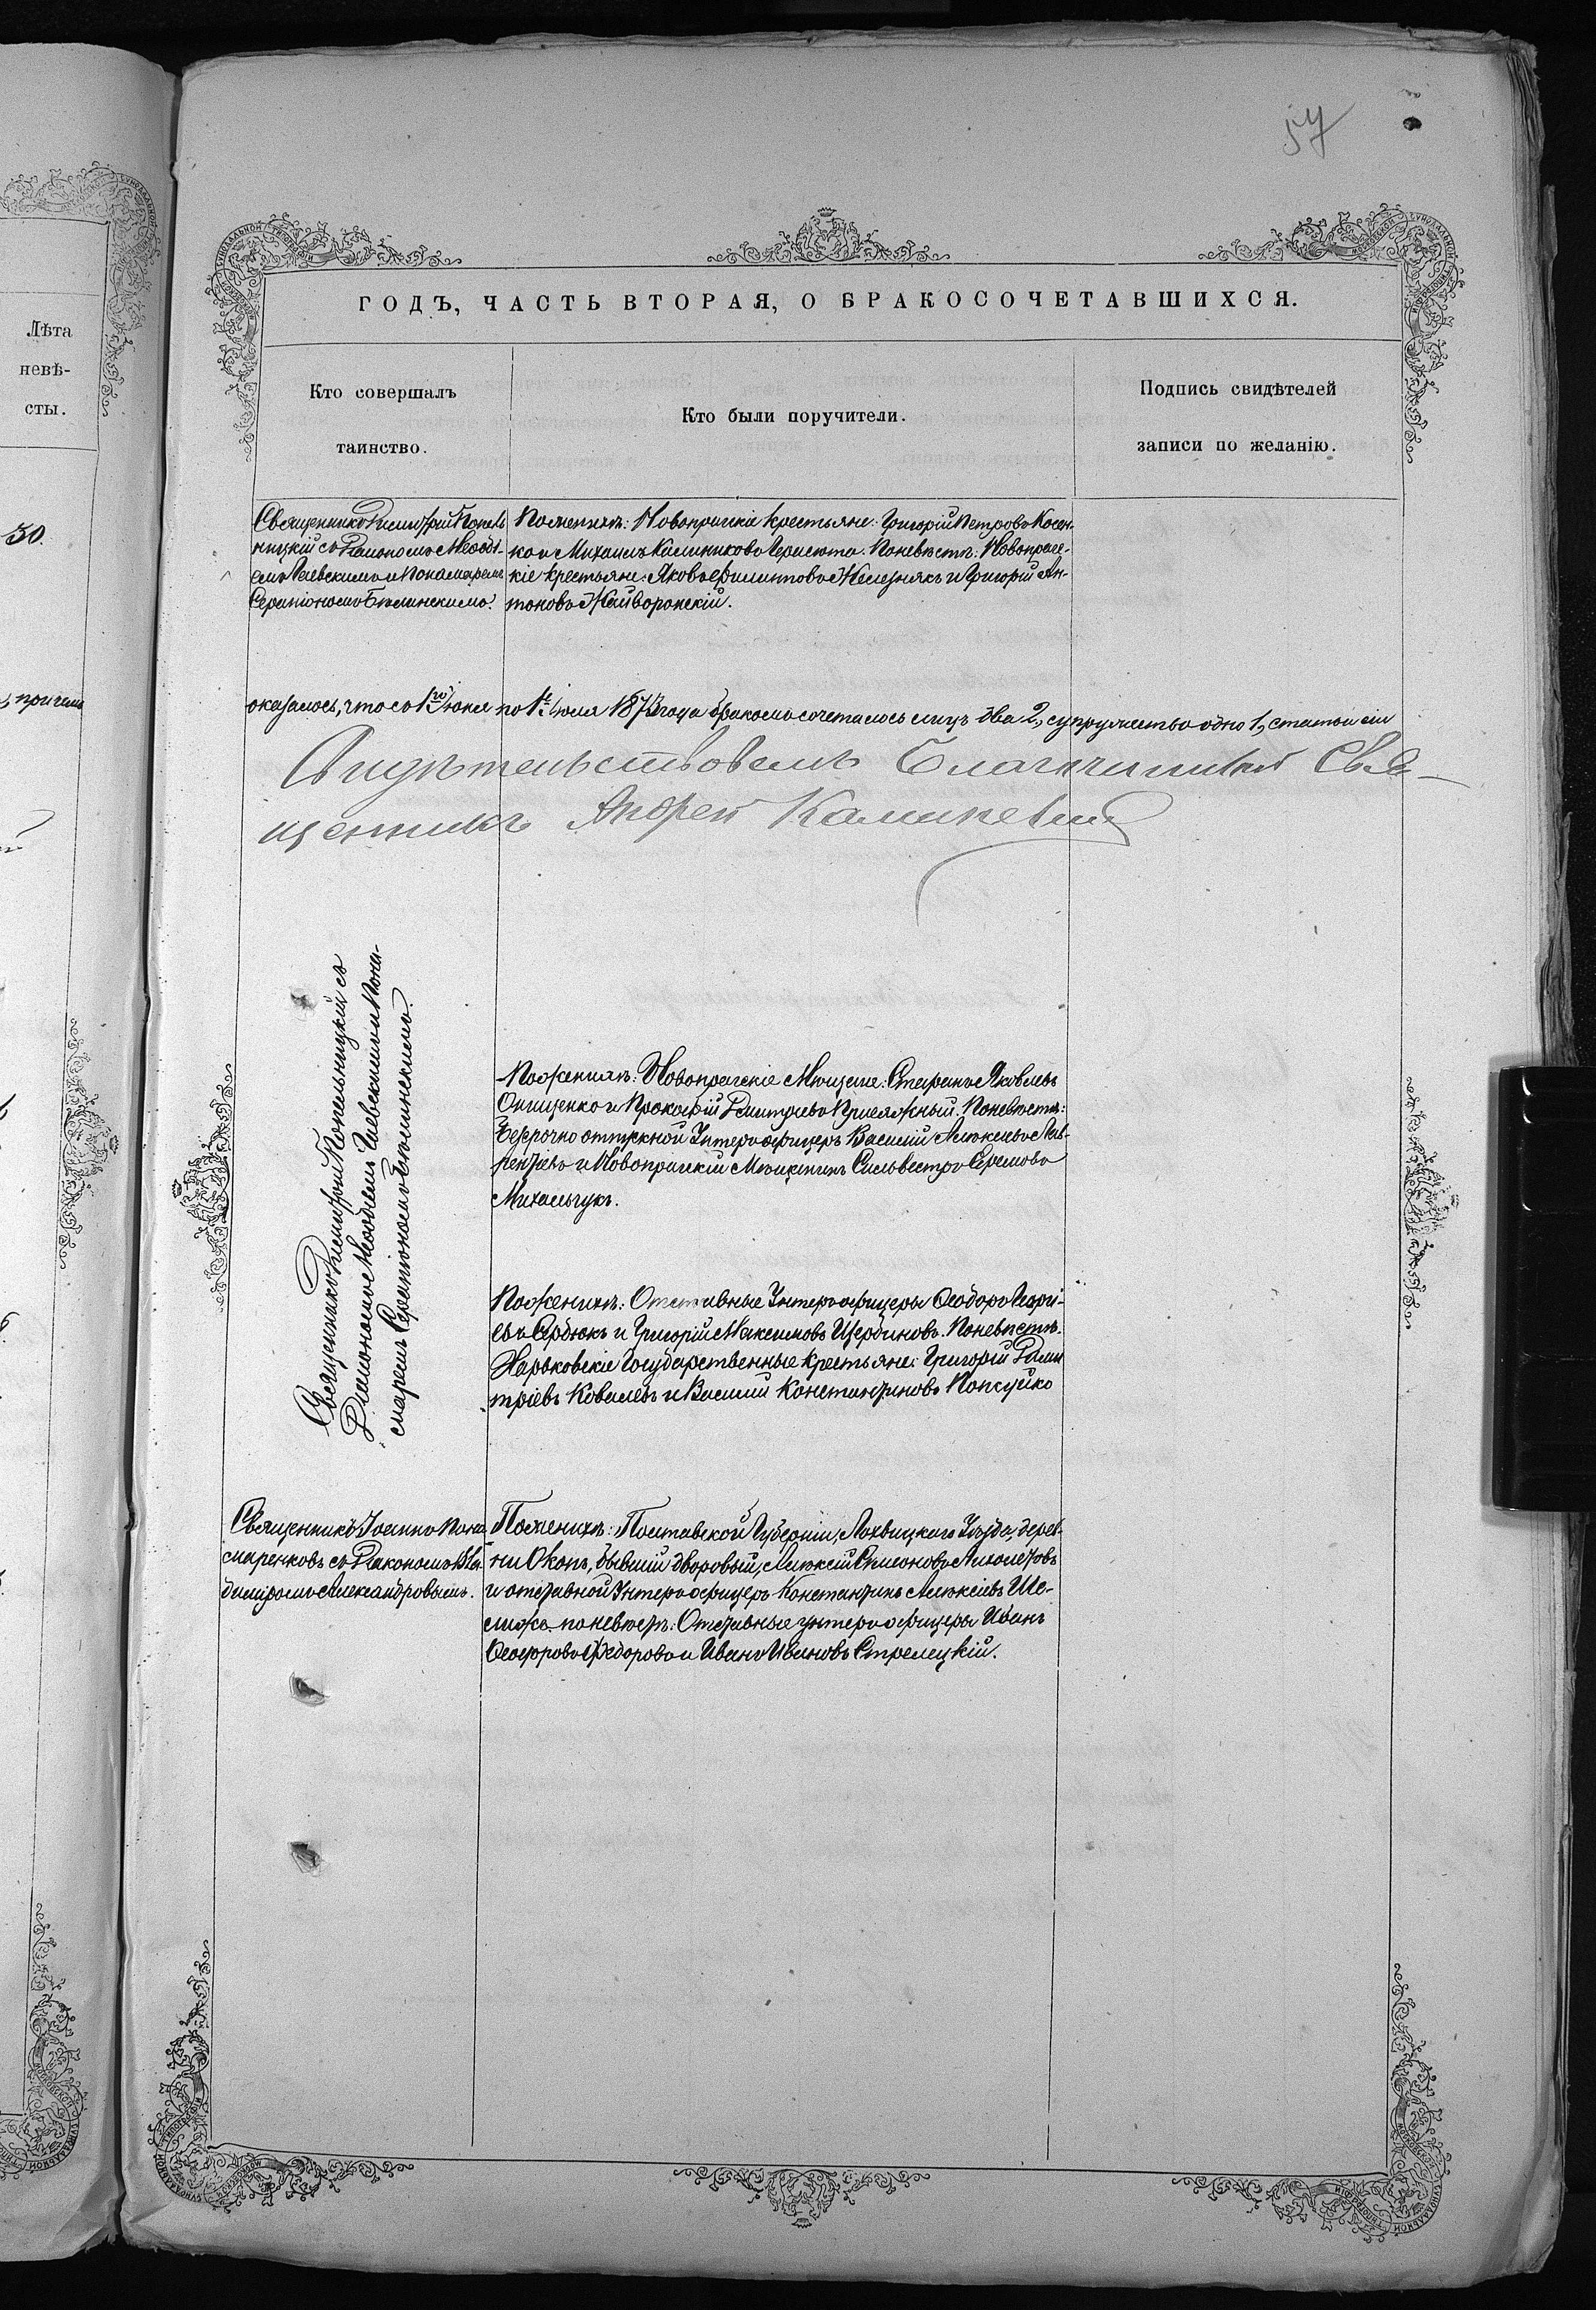 57
ГОДЪ, ЧАСТЬ ВТОРАЯ, О БРАКОСОЧЕТАВШИХСЯ.
Лѣта
невѣ-
сты.
Кто совершалъ
таинство.
Кто были поручители.
Подпись свидѣтелей
записи по желанію.
30.
Священникъ Димитрій Копель-
ницкій съ Діакономъ Меѳоді-
емъ Гаевскимъ и Понамаремъ
Серапіономъ Бѣлинскимъ.
По женихѣ: Новопражскіе крестьяне: Григорій Петровъ Косен-
ко и Михаилъ Калиниковъ Герасюта. По невѣстѣ: Новопраж-
скіе крестьяне: Яковъ Филиповъ Железнякъ и Григорій Ан-
тоновъ Жайворонскій.
причемъ
оказалось, что съ 1го Іюня по 1е Іюля 1873 года бракомъ сочеталось лицъ два 2, супружество одно 1, статьи сіи
Свидѣтельствовалъ Благочинный Свя-
щенникъ Андрей Калиневичъ
Священникъ Димитрій Копельницкій съ
Діакономъ Меѳодіемъ Гаевскимъ и Пона-
маремъ Серапіономъ Бѣлинскимъ.
По женихѣ: Новопражскіе Мѣщане: Стефанъ Яковлевъ
Онищенко и Прокофій Дмитріевъ Присяжный. По невѣстѣ:
Безсрочно отпускной Унтеръ офицеръ Василій Алексѣевъ Лав-
рентіевъ и Новопражскій Мѣщанинъ Сильвестръ
Михальчукъ.
По женихѣ: Отставные Унтеръ офицеры Ѳеодоръ Георгі-
евъ Сердюкъ и Григорій Максимовъ Щербиновъ. По невѣстѣ:
Харьковскіе Государственные крестьяне: Григорій Дими-
тріевъ Ковалевъ и Василій Константиновъ
Священникъ Іоаннъ Пона-
маренковъ съ Діакономъ Вла-
диміромъ Александровымъ.
По женихѣ: Полтавской Губерніи, Лохвицкаго Уѣзда, дерев-
ни Окопъ, бывшій дворовый, Алексій Симоновъ
и отставной Унтеръ офицеръ Константинъ Алексіевъ Ше-
по невѣстѣ: Отставные унтеръ офицеры Иванъ
Ѳедоровъ и Иванъ Ивановъ Стрелецкій.